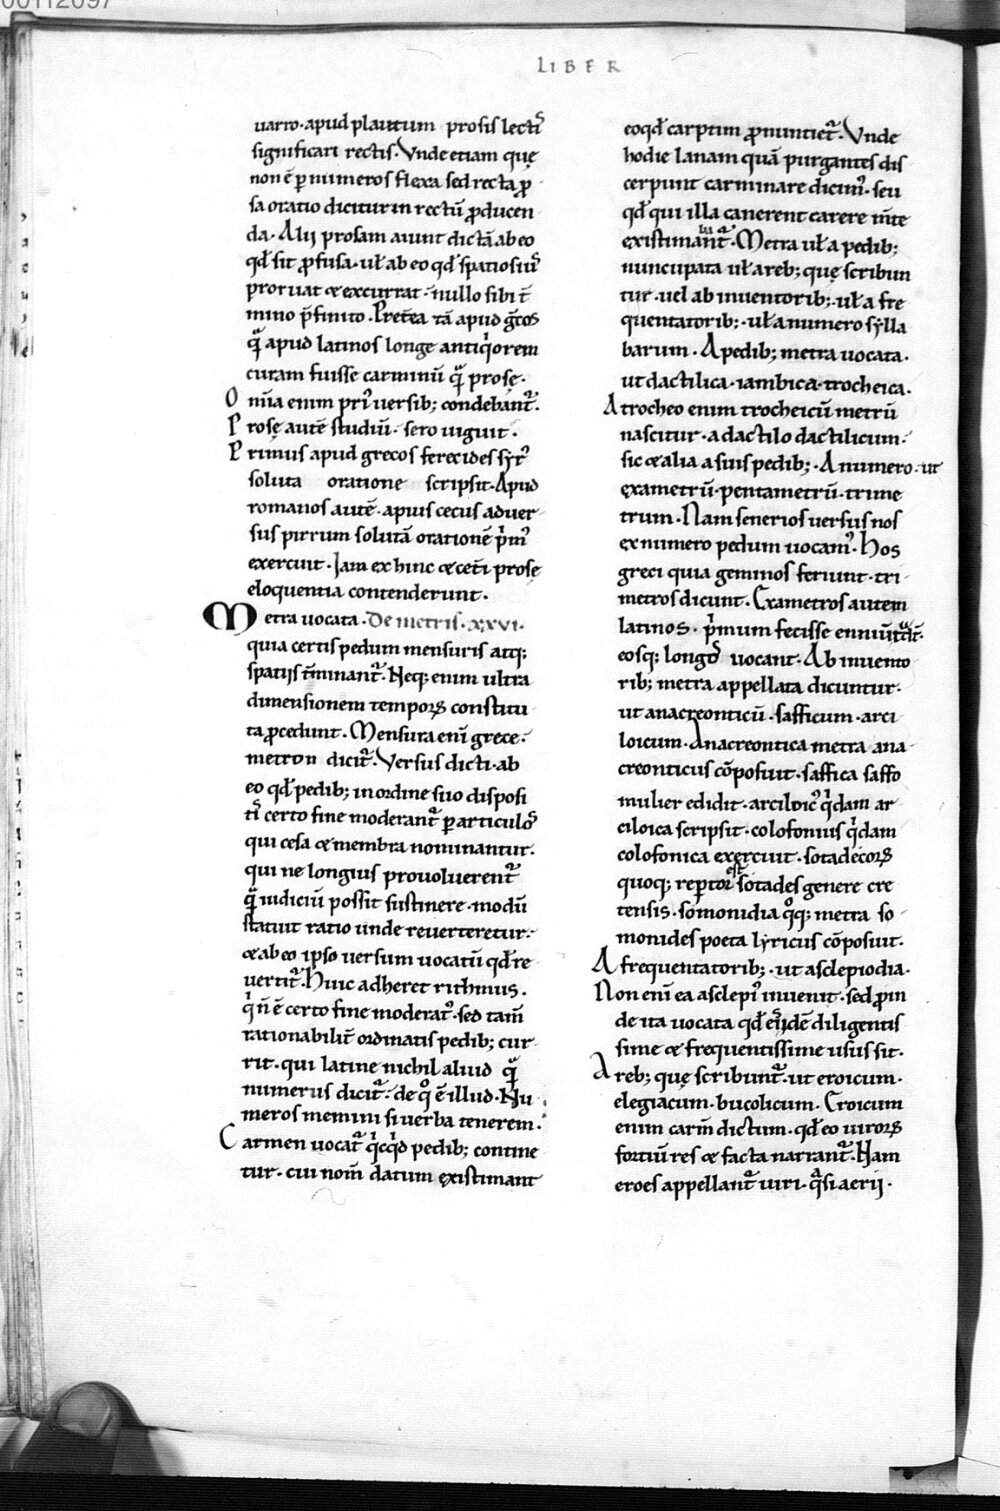 00112097
LIBER
uarro·apud plautum prosis lectis̄
significari rectis·Vnde etiam quę
non ē p̱ numeros flexa sed recta ꝓ
sa oratio dicitur in rectū ꝓducen
da·Alij prosam aiunt dictā ab eo
qd̄ sit ꝓfusa·uł ab eo qd̄ spatiosiꝰ
proruat & excurrat·nullo sibi t̄
mino p̄finito·Pret̄ea tā apud grecos
q̄ apud latinos longe antiqͥorem
curam fuisse carminū q̄ prosę·
Omīa enim priꝰ uersib; condebant᷑·
Prosę autē studiū·sero uiguit·
Primus apud grecos ferecides syrꝰ
soluta oratione scripsit·Apud
romanos autē·apius cecus aduer
sus pirrum solutā orationē pͥmꝰ
exercuit·Jam ex hinc & cet̄i prosę
eloquentia contenderunt·
Metra uocata·De metris·xxvi·
quia certis pedum mensuris atq;
spatijs t̄minant᷑·Neq; enim ultra
dimensionem temporꝝ constitu
ta ꝓcedunt·Mensura enī grece·
metron dicit᷑·Versus dicti·ab
eo qd̄ pedib; in ordine suo disposi
ti certo fine moderant᷑ p̱ articulos
qui cesa & membra nominantur·
qui ne longius prouoluerent᷑
q̄ iudiciū possit sustinere·modū
statuit ratio unde reuerteretur·
& ab eo ipso uersum uocatū qd̄ re
uertit᷑·Huic adheret rithmus·
qͥ n̄ ē certo fine moderatꝰ·sed tam̄
rationabilit̄ ordinatis pedib; cur
rit·qui latine nichil aliud q̄
numerus dicit᷑·de qͦ ē illud·Nu
meros memini si uerba tenerem·
Carmen uocat᷑ qͥcqͥd pedib; contine
tur·cui nom̄ datum existimant
eo qd̄ carptim ꝓnuntiet᷑·Vnde
hodie lanam quā purgantes dis
cerpunt carminare dicimꝰ·seu
qd̄ qui illa canerent carere m̄te
existimabant᷑·Metra uł a pedib;
nuncupata uł a reb; quę scribun
tur·uel ab inuentorib;·uł a fre
quentatorib;·uł a numero sylla
barum·A pedib; metra uocata·
ut dactilica·iambica·trocheica·
A trocheo enim trocheicū metrū
nascitur·a dactilo dactilicum·
sic & alia a suis pedib;·A numero·ut
exametrū·pentametrū·trime
trum·Nam senerios uersus nos
ex numero pedum uocamꝰ·Hos
greci quia geminos feriunt·tri
metros dicunt·Exametros autem
latinos·pͥmum fecisse enniū
eosq; longos uocant·Ab inuento
rib; metra appellata dicuntur·
ut anacreonticū·safficum·arci
loicum·Anacreontica metra ana
creonticus cōposuit·saffica saffo
mulier edidit·arciloicꝰ qͥdam ar
ciloica scripsit·colofonius qͥdam
colofonica exercuit·sotadecorꝝ
quoq; reptor est sotades genere cre
tensis·somonidia qͦq; metra so
monides poeta lyricus cōposuit·
A frequentatorib;·ut asclepiodia·
Non enī ea asclepiꝰ inuenit·sed ꝓin
de ita uocata qd̄ eijdē diligentis
sime & frequentissime usus sit·
A reb; quę scribunt᷑·ut eroicum·
elegiacum·bucolicum·Eroicum
enim carm̄ dictum·qd̄ eo uirorꝝ
fortiū res & facta narrant᷑·Nam
eroes appellant᷑ uiri·qͣsi aerij·